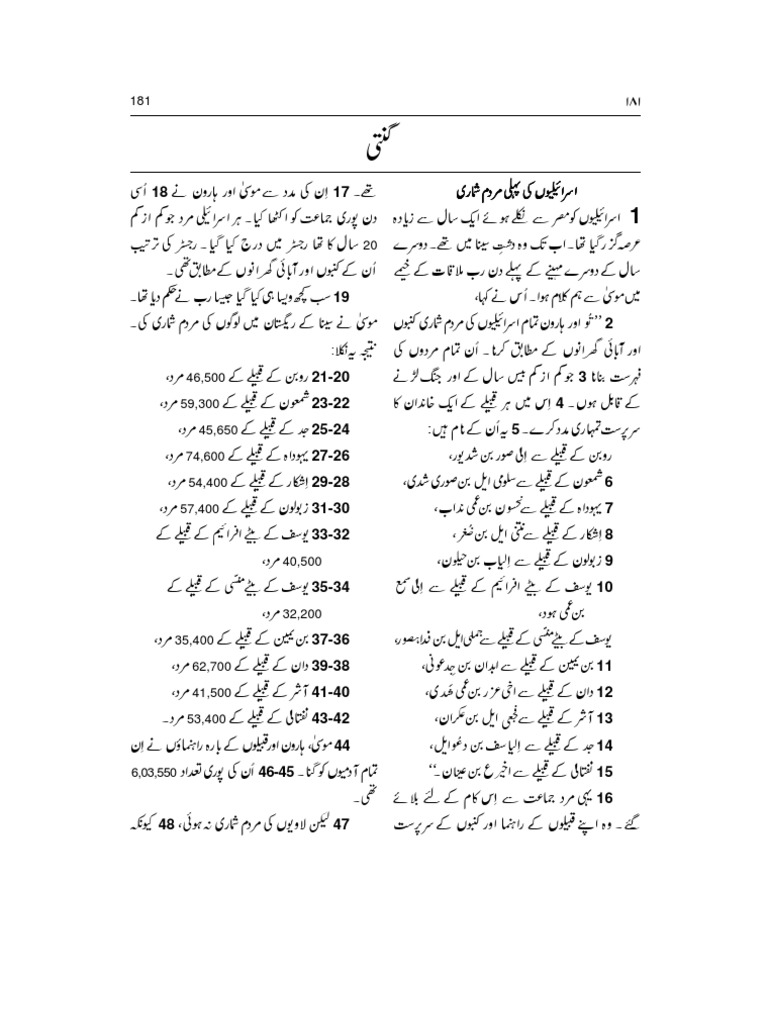 181
۱۸۱
گنتی
اسرائیلیوں کی پہلی مردم شماری
1 اسرائیلیوں کو مصر سے نکلے ہوئے ایک سال سے زیادہ
عرصہ گزر گیا تھا۔ اب تک وہ دشتِ سینا میں تھے۔ دوسرے
سال کے دوسرے مہینے کے پہلے دن رب ملاقات کے خیمے
میں موسیٰ سے ہم کلام ہوا۔ اُس نے کہا،
2 ”تُو اور ہارون تمام اسرائیلیوں کی مردم شماری کنبوں
اور آبائی گھرانوں کے مطابق کرنا۔ اُن تمام مردوں کی
فہرست بنانا 3 جو کم از کم بیس سال کے اور جنگ لڑنے
کے قابل ہوں۔ 4 اِس میں ہر قبیلے کے ایک خاندان کا
سرپرست تمہاری مدد کرے۔ 5 یہ اُن کے نام ہیں:
روبن کے قبیلے سے اِلی صور بن شدیور،
6 شمعون کے قبیلے سے سلومی ایل بن صوری شدی،
7 یہوداہ کے قبیلے سے نحسون بن عمی نداب،
8 اِشکار کے قبیلے سے نتنی ایل بن ضُغر،
9 زبولون کے قبیلے سے اِلیاب بن حیلون،
10 یوسف کے بیٹے افرائیم کے قبیلے سے اِلی سمع
بن عمی ہود،
یوسف کے بیٹے منسّی کے قبیلے سے جملی ایل بن فدا ہصور،
11 بن یمین کے قبیلے سے ابدان بن جِدعونی،
12 دان کے قبیلے سے اخی عزر بن عمی شدی،
13 آشر کے قبیلے سے فجعی ایل بن عکران،
14 جد کے قبیلے سے اِلیاسف بن دعوایل،
15 نفتالی کے قبیلے سے اخیرع بن عینان۔“
16 یہی مرد جماعت سے اِس کام کے لئے بلائے
گئے۔ وہ اپنے قبیلوں کے راہنما اور کنبوں کے سرپرست
تھے۔ 17 اِن کی مدد سے موسیٰ اور ہارون نے 18 اُسی
دن پوری جماعت کو اکٹھا کیا۔ ہر اسرائیلی مرد جو کم از کم
20 سال کا تھا رجسٹر میں درج کیا گیا۔ رجسٹر کی ترتیب
اُن کے کنبوں اور آبائی گھرانوں کے مطابق تھی۔
19 سب کچھ ویسا ہی کیا گیا جیسا رب نے حکم دیا تھا۔
موسیٰ نے سینا کے ریگستان میں لوگوں کی مردم شماری کی۔
نتیجہ یہ نکلا:
20-21 روبن کے قبیلے کے 46,500 مرد،
22-23 شمعون کے قبیلے کے 59,300 مرد،
24-25 جد کے قبیلے کے 45,650 مرد،
26-27 یہوداہ کے قبیلے کے 74,600 مرد،
28-29 اِشکار کے قبیلے کے 54,400 مرد،
30-31 زبولون کے قبیلے کے 57,400 مرد،
32-33 یوسف کے بیٹے افرائیم کے قبیلے کے
40,500 مرد،
34-35 یوسف کے بیٹے منسّی کے قبیلے کے
32,200 مرد،
36-37 بن یمین کے قبیلے کے 35,400 مرد،
38-39 دان کے قبیلے کے 62,700 مرد،
40-41 آشر کے قبیلے کے 41,500 مرد،
42-43 نفتالی کے قبیلے کے 53,400 مرد۔
44 موسیٰ، ہارون اور قبیلوں کے بارہ راہنماؤں نے اِن
تمام آدمیوں کو گنا۔ 45-46 اُن کی پوری تعداد 6,03,550
تھی۔
47 لیکن لاویوں کی مردم شماری نہ ہوئی، 48 کیونکہ